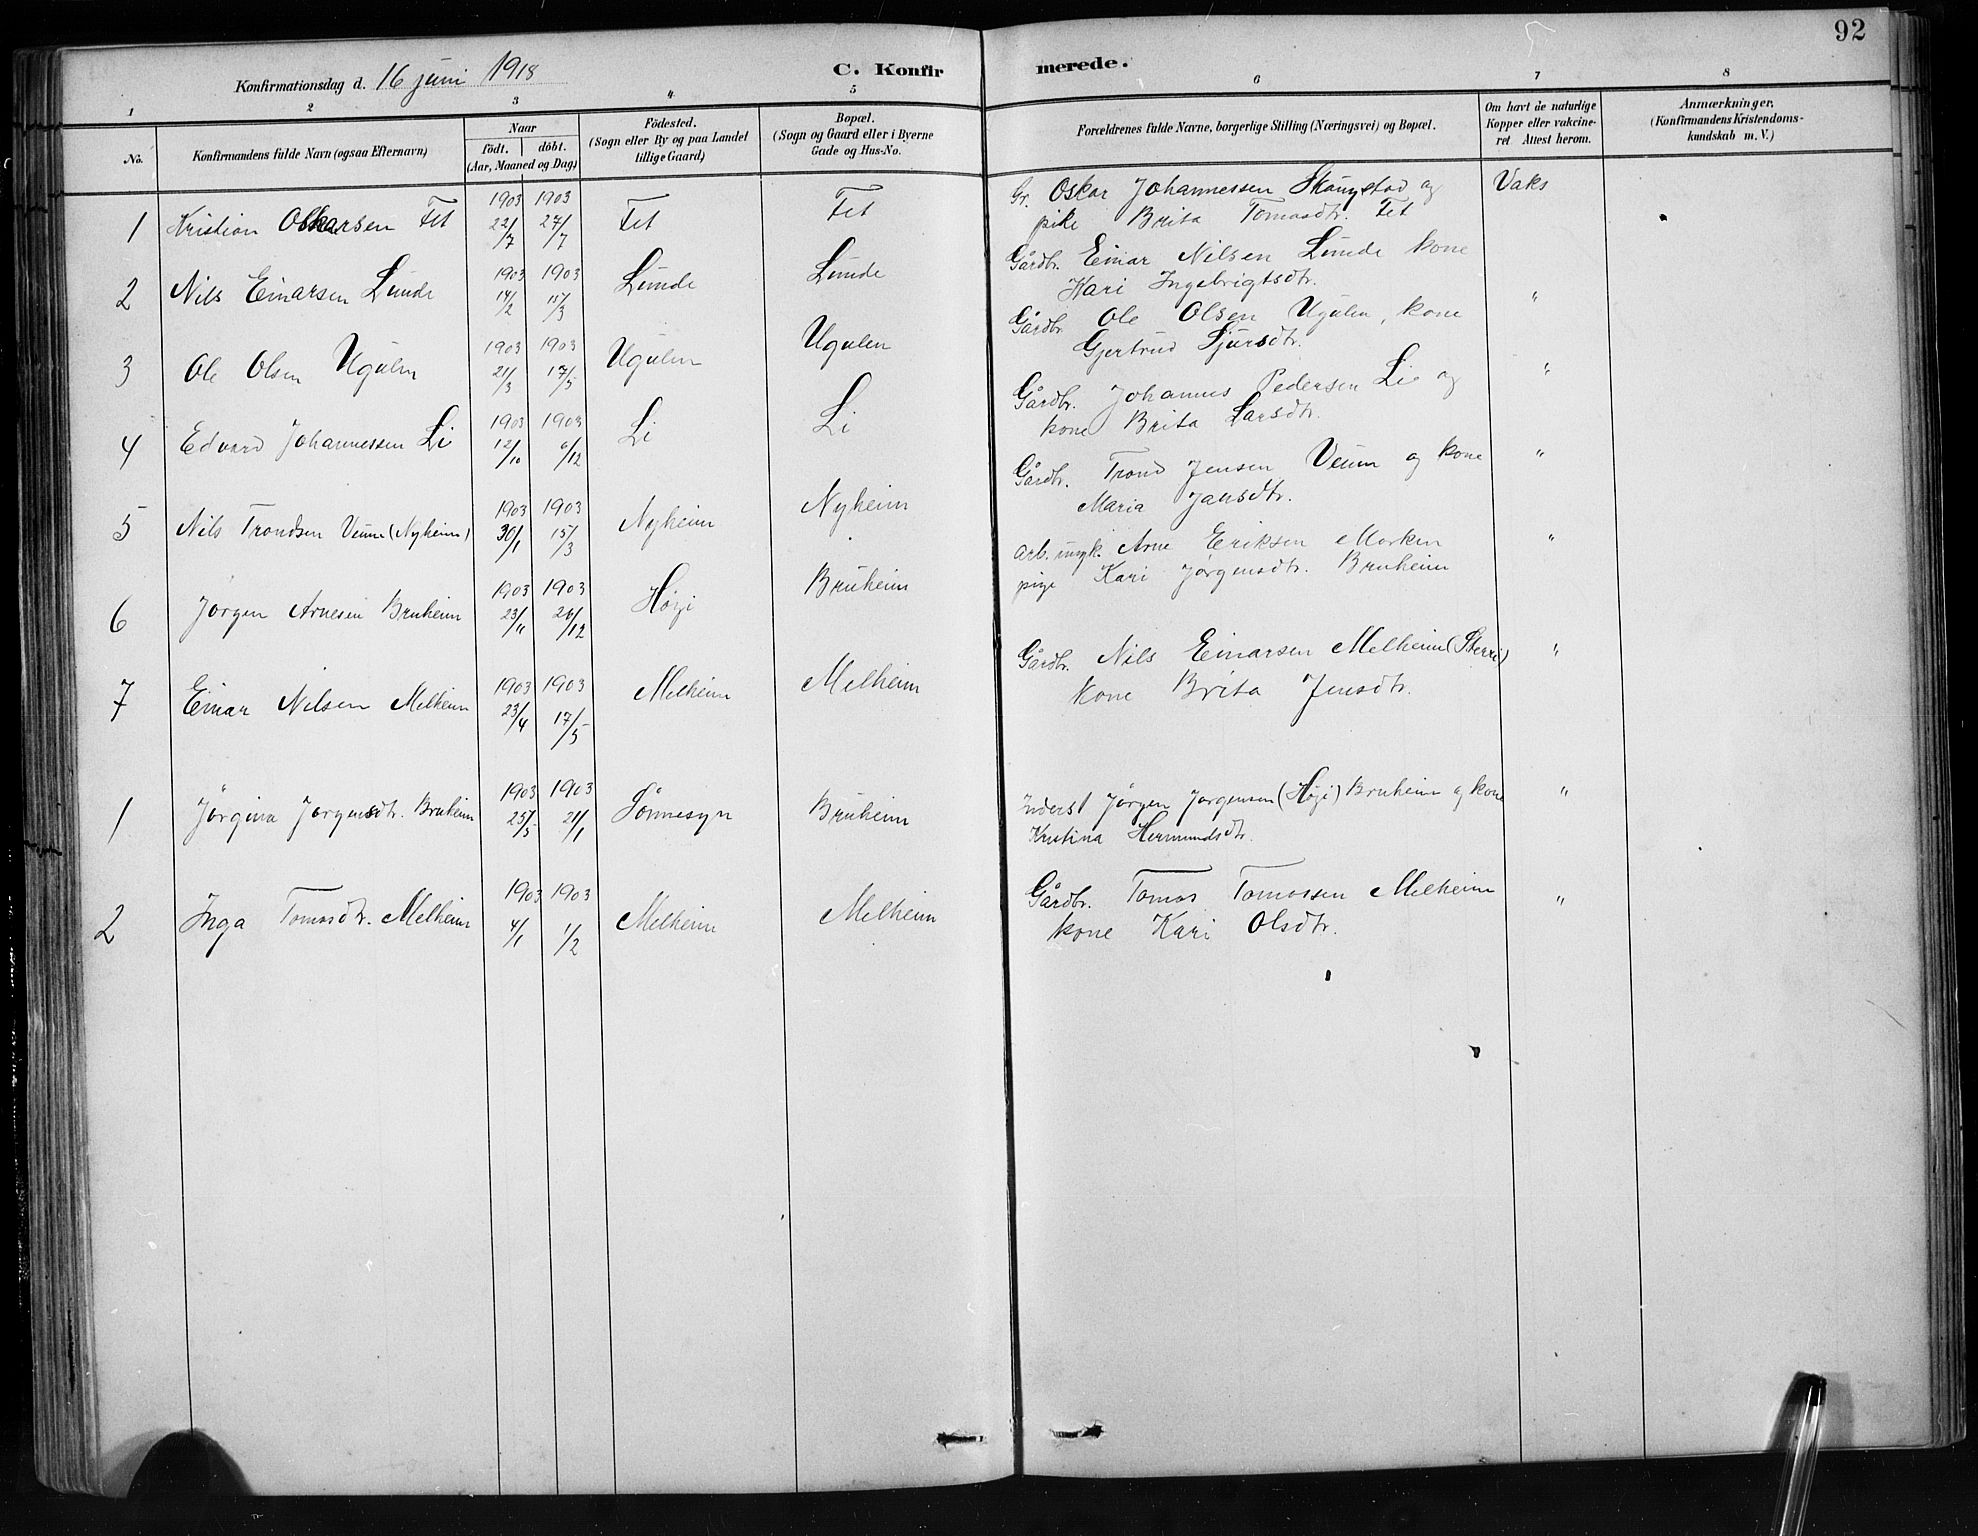 92
Konfirmationsdag d. 16 juni 1918
C. Konfirmerede.
1 2 3 4 5 6 7 8
No. Konfirmandens fulde Navn (ogsaa Efternavn) Naar födt. döbt. (Aar, Maaned og Dag) Födested. (Sogn eller By og paa Landet tillige Gaard) Bopæl. (Sogn og Gaard eller i Byerne Gade og Hus-No. Forældrenes fulde Navne, borgerlige Stilling (Næringsvei) og Bopæl. Om havt de naturlige Kopper eller vakcineret Attest herom. Anmærkninger. (Konfirmandens Kristendomskundskab m. V.)
1 Kristian Oskarsen Fet 1903 22/7 1903 27/7 Fet Fet Gr. Oskar Johannessen Skougstad og Vaks
pike Brita Tomasdtr. Fet
2 Nils Einarsen Lunde 1903 14/2 1903 15/3 Lunde Lunde Gårdbr. Einar Nilsen Lunde kone
Kari Ingebrigtsdtr. "
3 Ole Olsen Ugulen 1903 21/3 1903 17/5 Ugulen Ugulen Gårdbr. Ole Olsen Ugulen, kone
Gjertrud Sjursdtr. "
4 Edvard Johannessen Li 1903 12/10 1903 6/12 Li Li Gårdbr. Johannes Pedersen Li og
kone Brita Larsdtr. "
5 Nils Trondsen Veum (Nyheim) 1903 30/1 1903 15/3 Nyheim Nyheim Gårdbr. Trond Jensen Veum og kone
Maria Jansdtr. "
6 Jørgen Arnesen Bruheim 1903 23/11 1903 26/12 Høgi Bruheim arb. ungk. Arne Eriksen Morken
pige Kari Jørgensdtr. Bruheim
7 Einar Nilsen Melheim 1903 23/4 1903 17/5 Melheim Melheim Gårdbr. Nils Einarsen Melheim "
kone Brita Jensdtr.
1 Jørgina Jørgensdtr. Bruheim 1903 25/5 1903 21/1 Sønnesyn Bruheim Inderst Jørgen Jørgensen (Høgi) Bruheim og kone "
Kristina Hermundsdtr.
2 Inga Tomasdtr. Melheim 1903 4/1 1903 1/2 Melheim Melheim Gårdbr. Tomas Tomassen Melheim "
kone Kari Olsdtr.